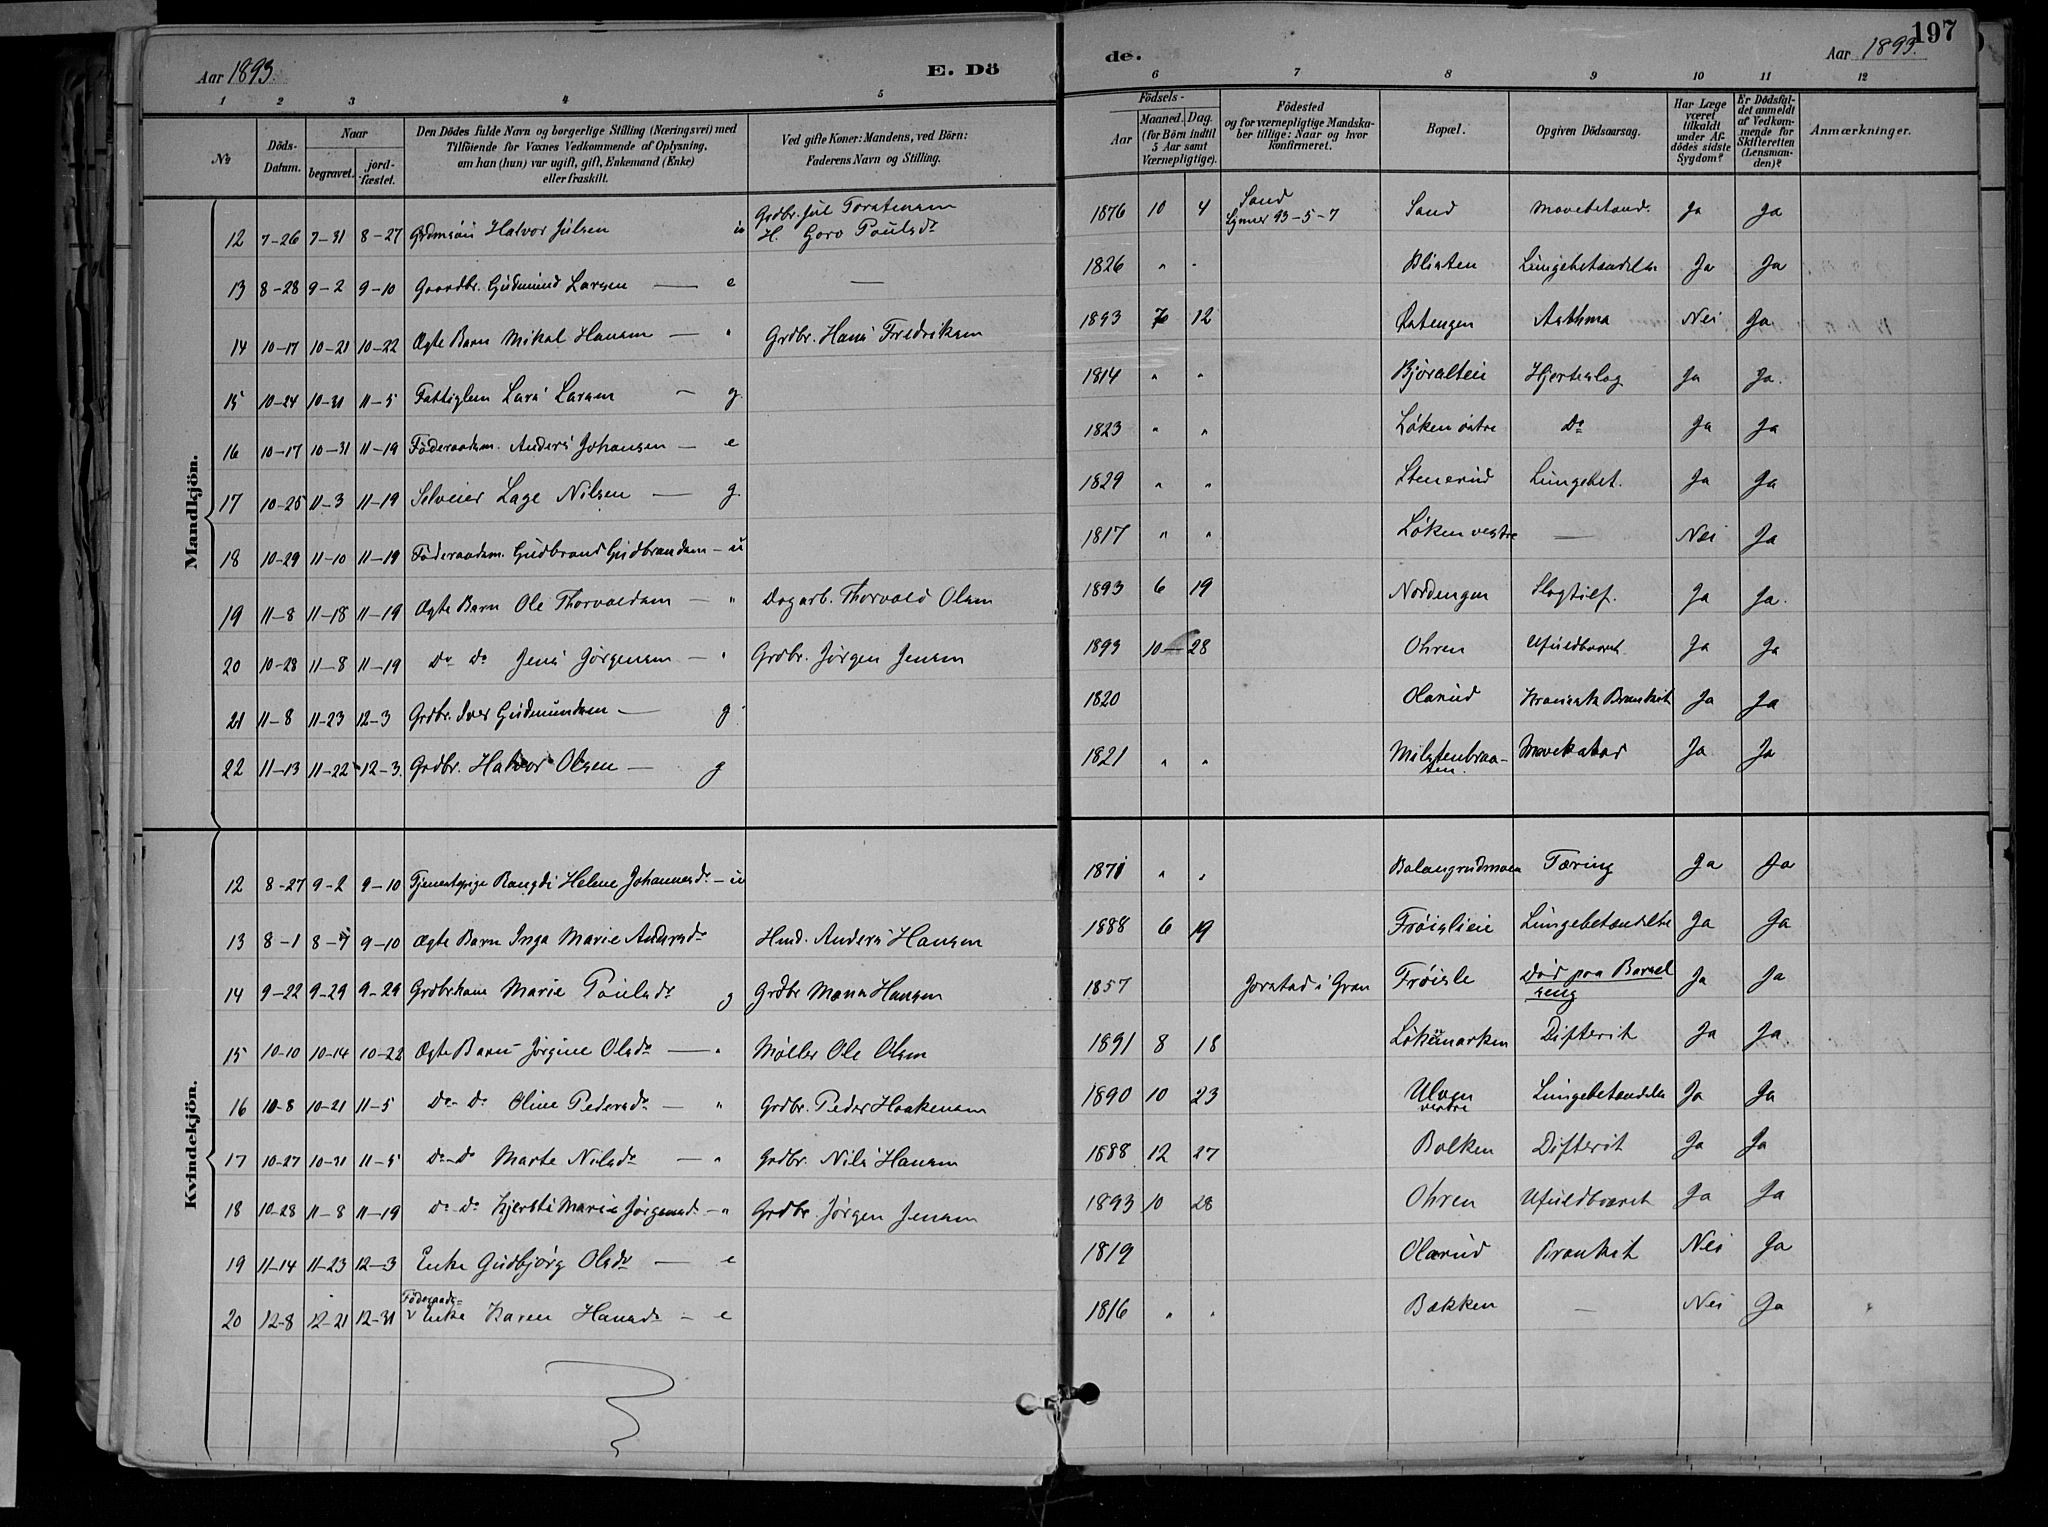 197
Aar 1893.
E. Dö
de.
Aar 1893.
1 2 3 4 5 6 7 8 9 10 11 12
No
Döds-Datum.
Naar
begravet.
jord-fæstet.
Den Dödes fulde Navn og borgerlige Stilling (Næringsvei) med
Tilföiende for Voxnes Vedkommende af Oplysning,
om han (hun) var ugift, gift, Enkemand (Enke)
eller fraskilt.
Ved gifte Koner: Mandens, ved Börn:
Faderens Navn og Stilling.
Födsels-
Aar
Maaned. Dag.
(for Börn indtil
5 Aar samt
Værnepligtige).
Födested
og for værnepligtige Mandska-
ber tillige: Naar og hvor
konfirmeret.
Bopæl.
Opgiven Dödsaarsag.
Har Læge
været
tilkaldt
under Af-
dödes sidste
Sygdom?
Er Dödsfal-
det anmeldt
af Vedkom-
mende for
Skifteretten
(Lensman-
den)?
Anmærkninger.
Mandkjön.
12 7-26 7-31 8-27 Halvor Julsen u Grdbr. Jul Torstensen 1876 10 4 Sand Sand Mavebetænd. Ja Ja
H. Goro Poulsdr 93-5-7
13 8-28 9-2 9-10 Gaardbr. Gudmund Larsen — e — 1826 " " Lungebetændelse Ja Ja
14 10-17 10-21 10-22 Ægte Barn Mikal Hansen — " Grdbr. Hans Fredriksen 1893 7 12 Asthma Nei Ja
15 10-24 10-31 11-5 Fattiglem Lars Larsen — g. 1814 " " Hjerteslag Ja Ja.
16 10-17 10-31 11-19 Föderaadsm. Anders Johansen — e 1823 " " Løken østre Do Ja Ja
17 10-25 11-3 11-19 Selveier Lage Nilsen — g. 1829 " " Stenerud Lungebet. Ja Ja
18 10-29 11-10 11-19 Föderaadsm. Gudbrand Gudbrandsen — u 1817 " " Løken vestre — Nei Ja
19 11-8 11-18 11-19 Ægte Barn Ole Thorvaldsen — " Dagarb. Thorvald Olsen 1893 6 19 Nordengen Slagtilf. Ja Ja.
20 10-28 11-8 11-19 Do Do Jens Jørgensen — " Grdbr. Jørgen Jensen 1893 10 28 Ohren Ufuldbaaret Ja Ja
21 11-8 11-23 12-3 Grdbr. Iver Gudmundsen — g. 1820 Olarud Kronisk Bronkit Ja Ja
22 11-13 11-22 12-3. Grdbr. Halvor Olsen — g 1821 " " Milstenbraa-
ten. Mavekatar Ja Ja
Kvindekjön.
12 8-27 9-2 9-10 Tjenestepige Rangdi Helene Johannesdr — u 1871 " " Tæring Ja Ja
13 8-1 8-9 9-10 Ægte Barn Inga Marie Andersdr Hmd. Anders Hansen 1888 6 19 Frøislieie Lungebetændelse Ja Ja
14 9-22 9-29 9-29 Grdbrkone Marie Poulsdr g Grdbr Mons Hansen 1857 Jorstad i Gran Frøisle Død paa Barsel
seng Ja Ja
15 10-10 10-14 10-22 Ægte Barn Jørgine Olsdr — " Møller Ole Olsen 1891 8 18 Difterit Ja Ja.
16 10-8 10-21 11-5 Do Do Oline Pedersdr — " Grdbr. Peder Haakensen 1890 10 23 Ulven
vestre Lungebetændelse Ja Ja
17 10-27 10-31 11-5 Do-Do Marte Nilsdr — " Grdbr. Nils Hansen 1888 12 27 Bolken Difterit Ja Ja
18 10-28 11-8 11-19 Do-Do Kjersti Marie Jørgensdr — " Grdbr. Jørgen Jensen 1893 10 28 Ohren Ufuldbaaret Ja Ja
19 11-14 11-23 12-3 Enke Gudbjørg Olsdr — e 1819 Olarud Bronkit Nei Ja
20 12-8 12-21 12-31 Föderaads-
Enke Karen Hansdr — e 1816 " " Bakken — Nei Ja